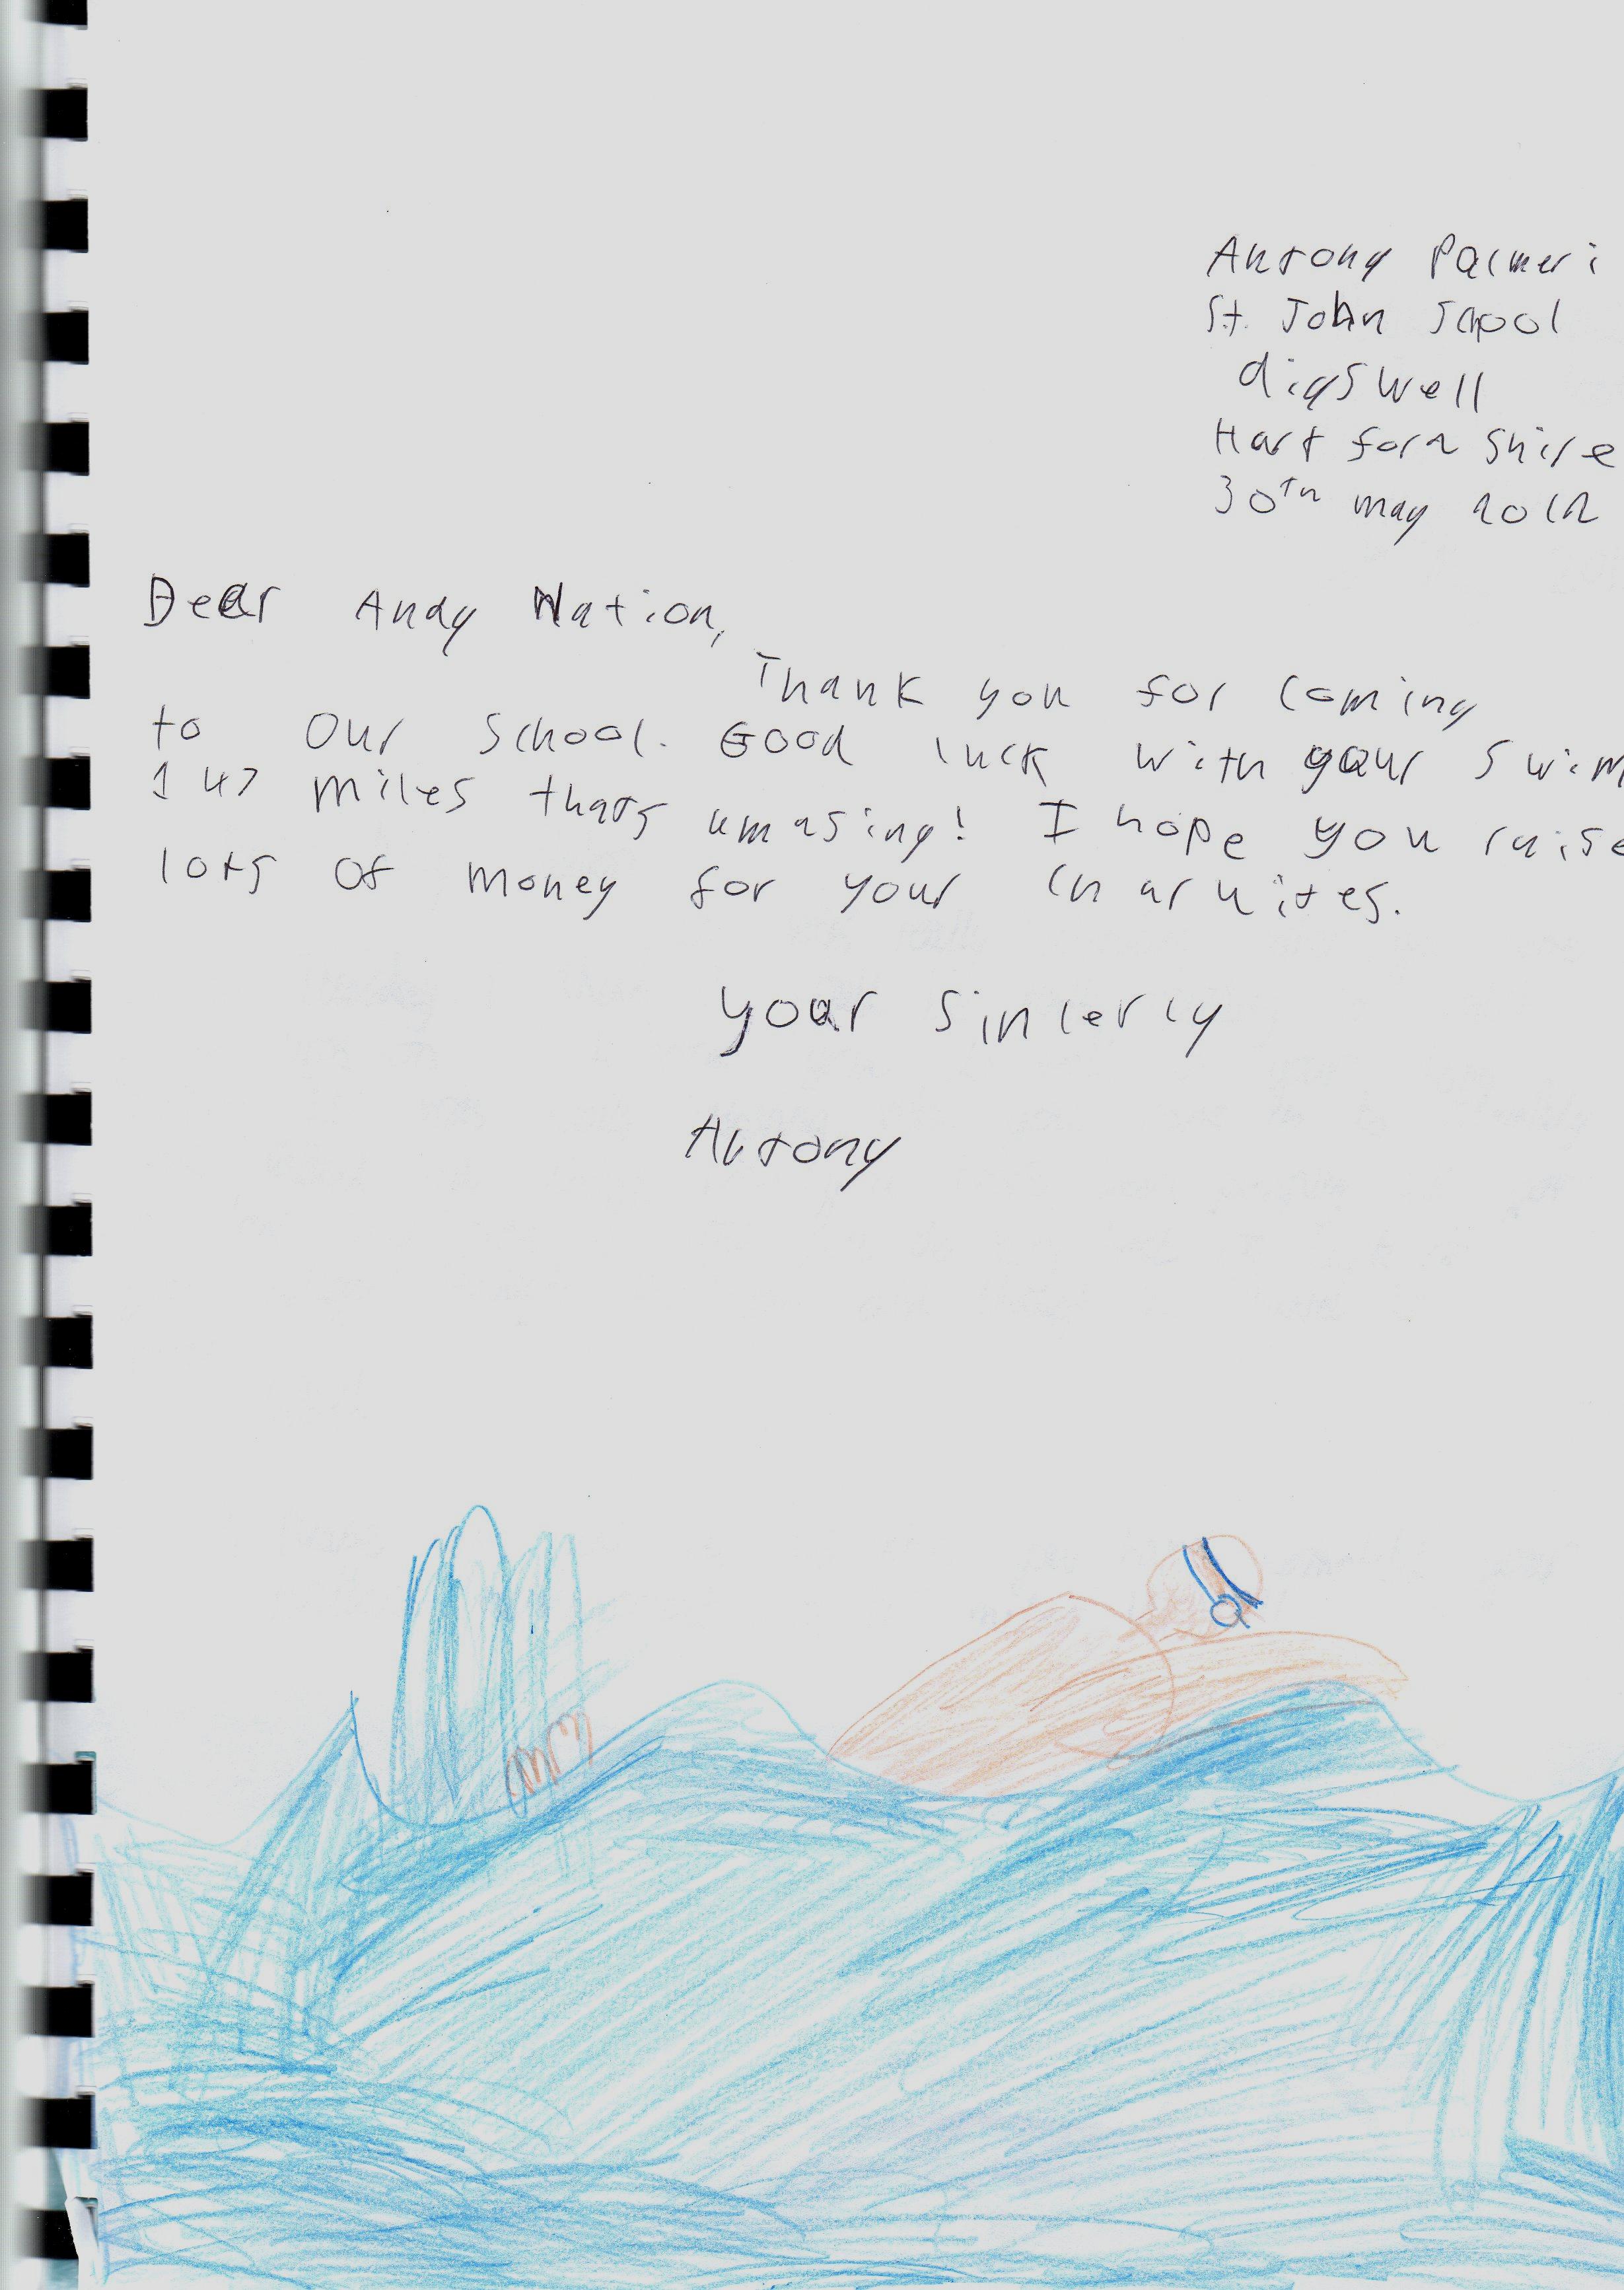 Antony Palmeri
St. John School
digswell
Hart ford shire
30th may 2012
Dear Andy Nation,
Thank you for coming
to Our School. Good luck with your swim
147 miles thats amasing! I hope you raise
lots of money for your charuites.
your sincerly
Antony